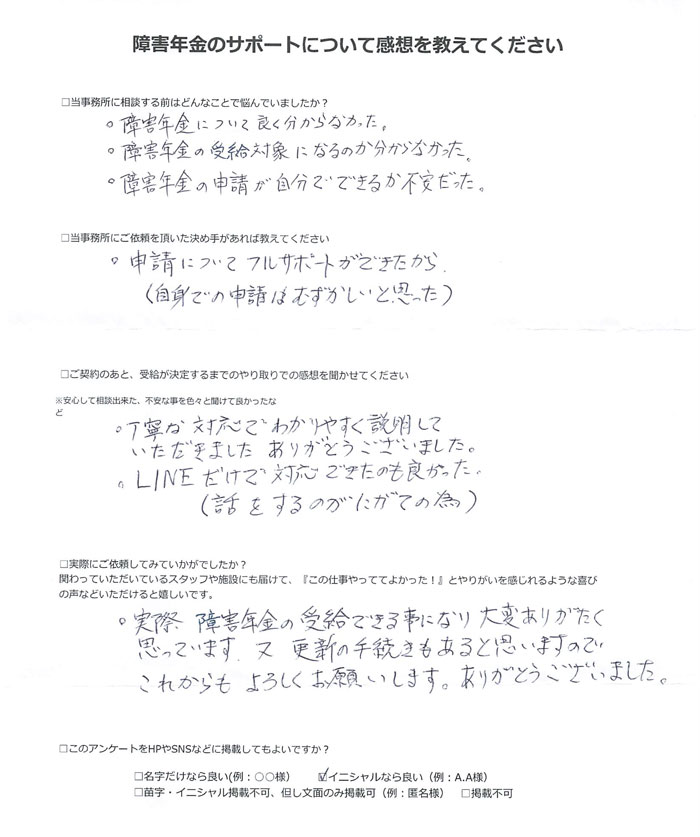 障害年金のサポートについて感想を教えてください
□当事務所に相談する前はどんなことで悩んでいましたか？
○障害年金について良く分からなかった。
○障害年金の受給対象になるのか分からなかった。
○障害年金の申請が自分でできるか不安だった。
□当事務所にご依頼を頂いた決め手があれば教えてください
○申請についてフルサポートができたから.
(自身での申請はむずかしいと思った)
□ご契約のあと、受給が決定するまでのやり取りでの感想を聞かせてください
※安心して相談出来た、不安な事を色々と聞けて良かったな
ど
○丁寧な対応でわかりやすく説明して
いただきました ありがとうございました。
○LINEだけで対応できたのも良かった.
(話をするのがにがての為)
□実際にご依頼してみていかがでしたか？
関わっていただいているスタッフや施設にも届けて、『この仕事やっててよかった！』とやりがいを感じれるような喜び
の声などいただけると嬉しいです。
○実際 障害年金の受給できる事になり 大変ありがたく
思っています. 又 更新の手続きもあると思いますので
これからも よろしくお願いします。ありがとうございました。
□このアンケートをHPやSNSなどに掲載してもよいですか？
□名字だけなら良い(例：○○様) ☑イニシャルなら良い（例：A.A様）
□苗字・イニシャル掲載不可、但し文面のみ掲載可（例：匿名様） □掲載不可